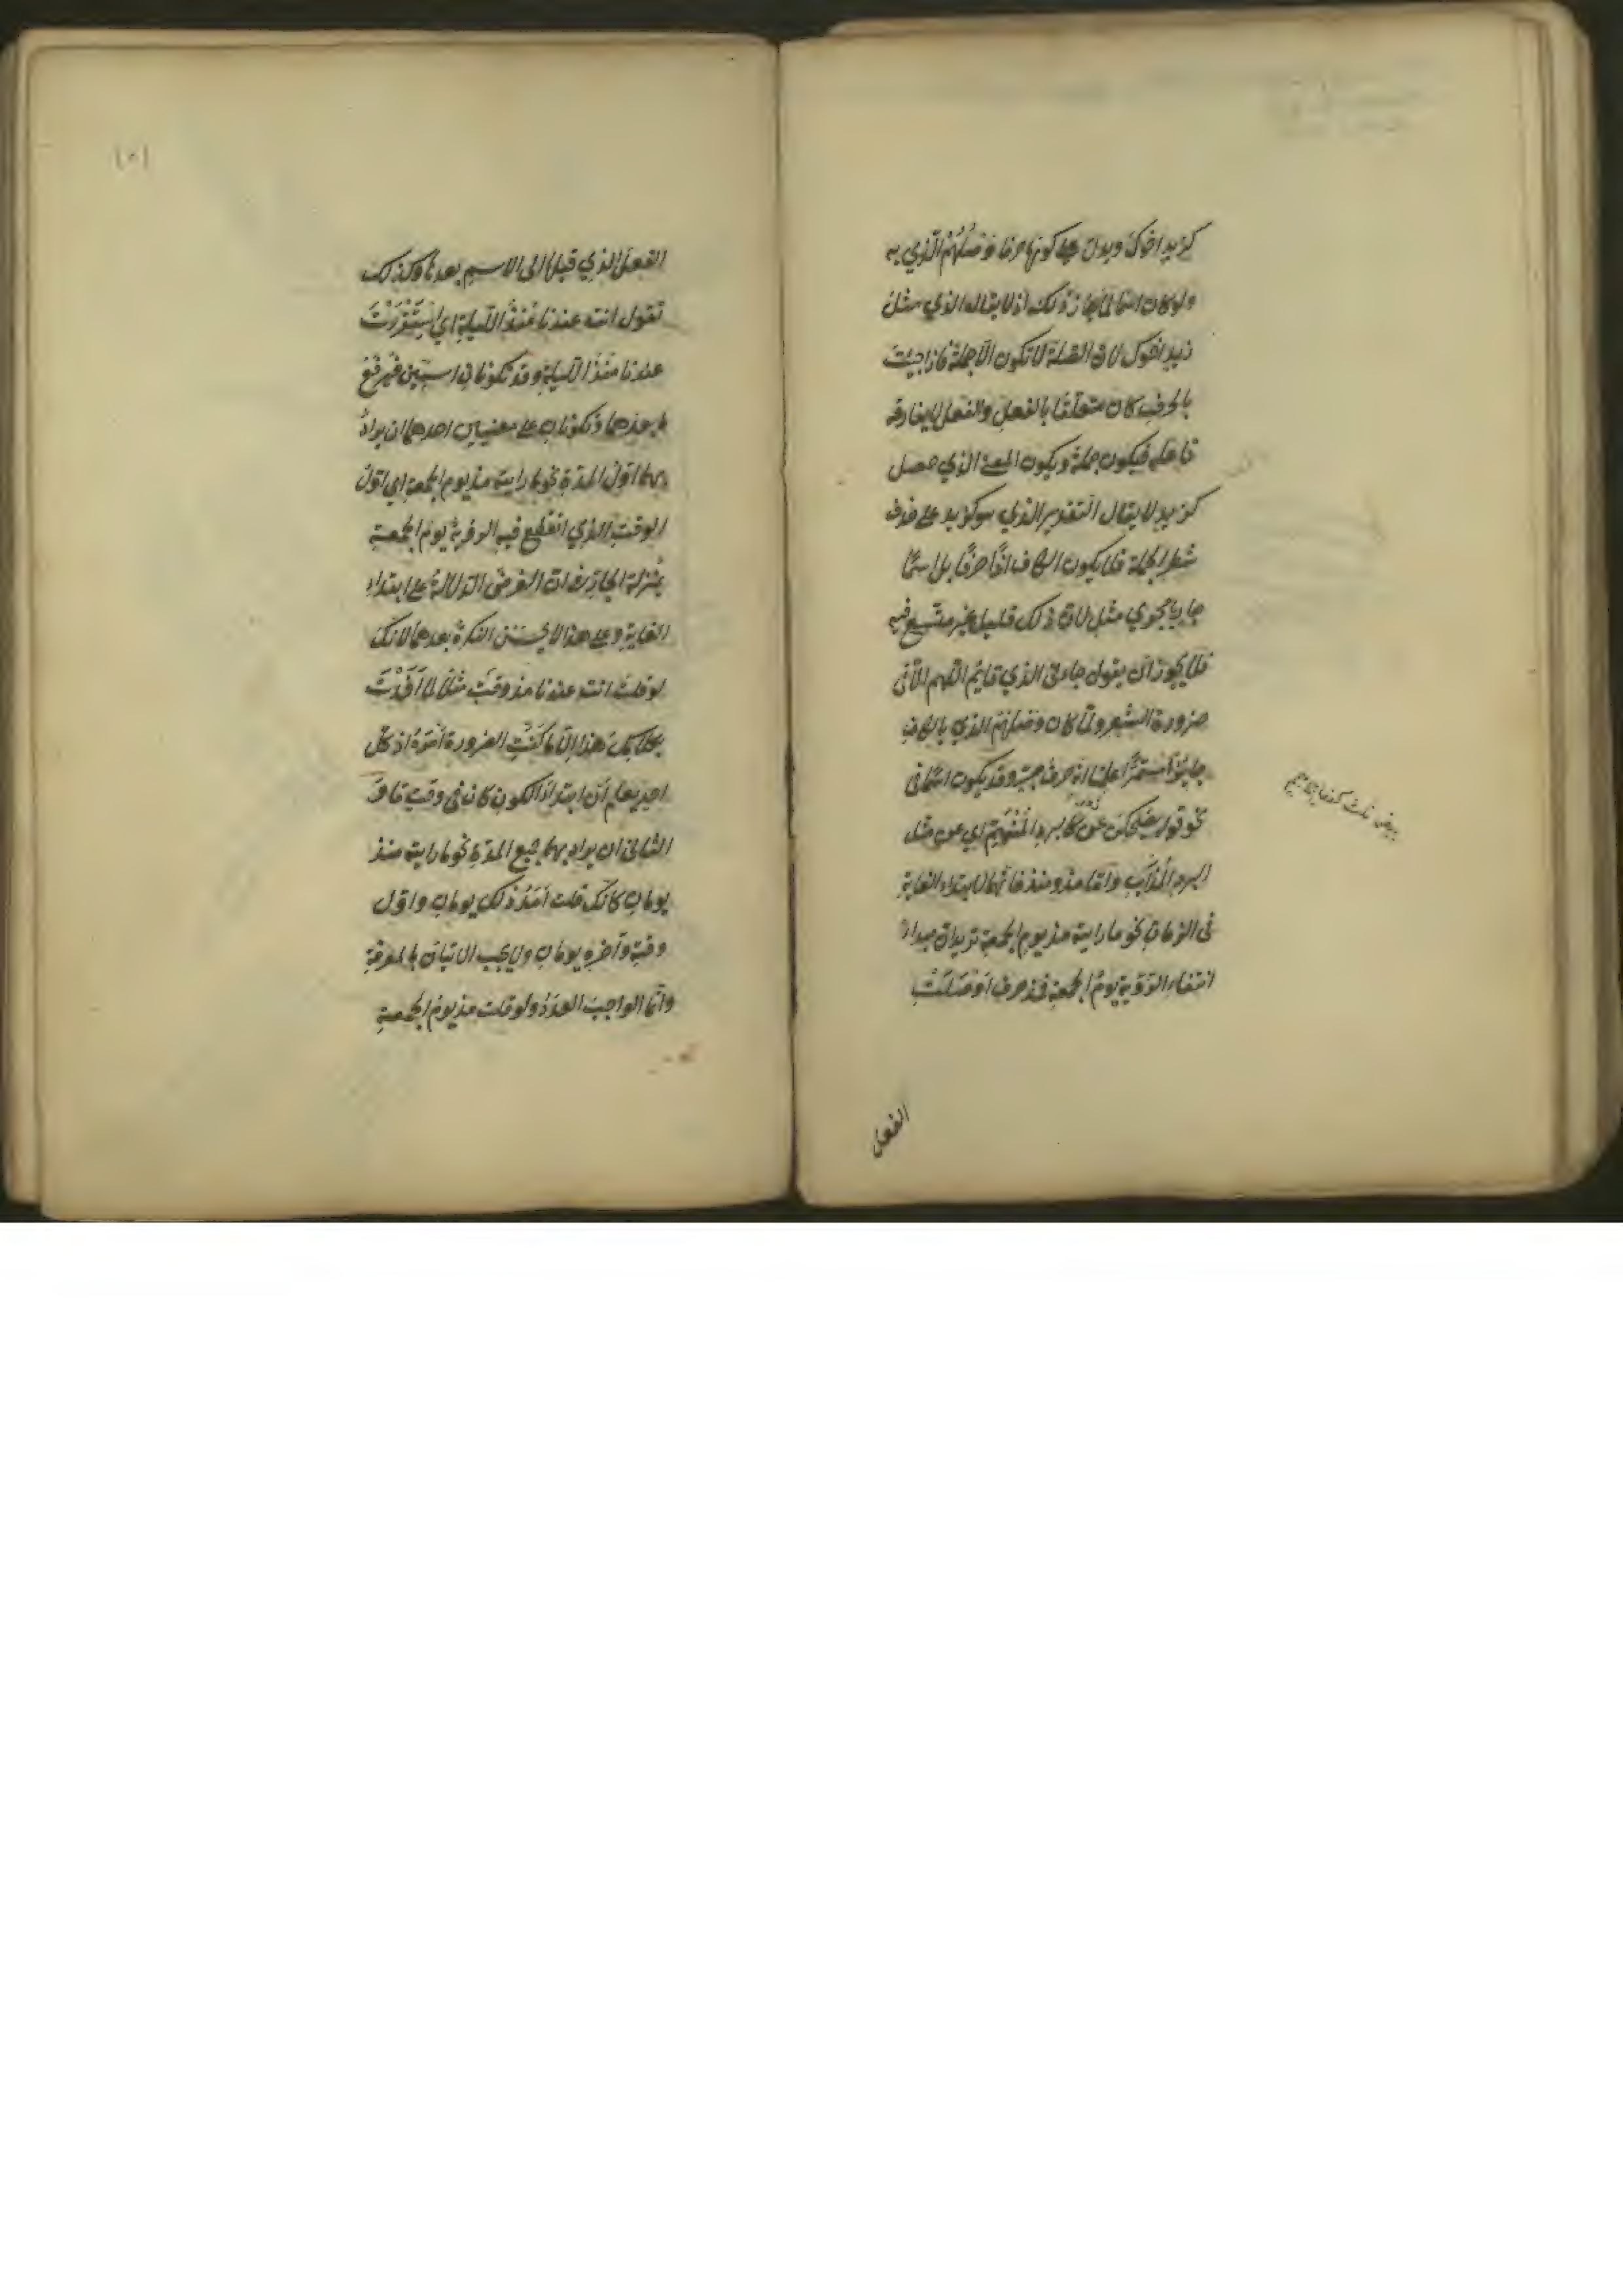 كزيد اخوك ويدل على كونها حرفا وَصْلُهُمْ الّذي به
ولو كان اسمًا لما جاز ذلك اذ لا يقال الذي مثل
زيد اخوك لان الصّلة لا تكون الّا جملة فاذا جيئت
بالحرف كان متعلّقًا بالفعل والفعل لا يفارقه
فاعله فيكون جملة ويكون المعنى الذي حصل
كزيد لا يقال التقدير الذي هو كزيد على حذف
شطر الجملة فلا يكون الكاف اذًا حرفًا بل اسمًا
جاريا مجرى مثل لان ذلك قليل غير متّسع فيه
فلا يجوز ان يقول جاءنى الذي قايم اللهم الّا فى
ضرورة الشعر ولمّا كان وصلهم الذي بالكاف
جايزًا مستمرًّا علمنا انه حرف جرّ وقد يكون اسمًا فى
نحو قوله يضحكن عن كالبرد المُنْهَمِّ اي عن مثل
البرد الذّائب وامّا مذ ومنذ فانّهما لابتداء الغاية
فى الزمان نحو ما رايته مذ يوم الجمعة تريد ان مبداء
انتفاء الرّؤية يوم الجمعة فمذ حرف اَوْصَلَتْ
الفعل
الفعل الذي قبلها الى الاسم بعدها وكذلك
تقول انت عندنا مُنذُ اللّيلةِ اي اِسْتَقْرَرْتَ
عندنا مُنذُ اللّيلة وقد تكونان اسمين فيرفع
ما بعدهما وتكونان على معنيين احدهما ان يراد
بهما اوّل المدّة نحو ما رايته مذ يوم الجمعة اي اوّل
الوقت الذي انقطع فيه الرؤية يوم الجمعة
بمنزلة الجارّة فى ان الغرض الدّلالة على ابتداء
الغاية وعلى هذا لا يحسن النكرة بعدهما لانّك
لو قلت انت عندنا مذ وقت مثلًا لما اَفَدْتَ
بكلامك هذا الّا ما كنت الضرورة اذ كلّ
احد يعلم انّ ابتداء الكون كان فى وقت ما و
الثانى ان يراد بهما جميع المدّة نحو ما رايته منذ
يومان كانّك قلت اَمَدُ ذلك يومان واوّل
وقته وآخره يومان ولا يجب الاتيان بالمعرفة
وانّما الواجب العدد ولو قلت مذ يوم الجمعة